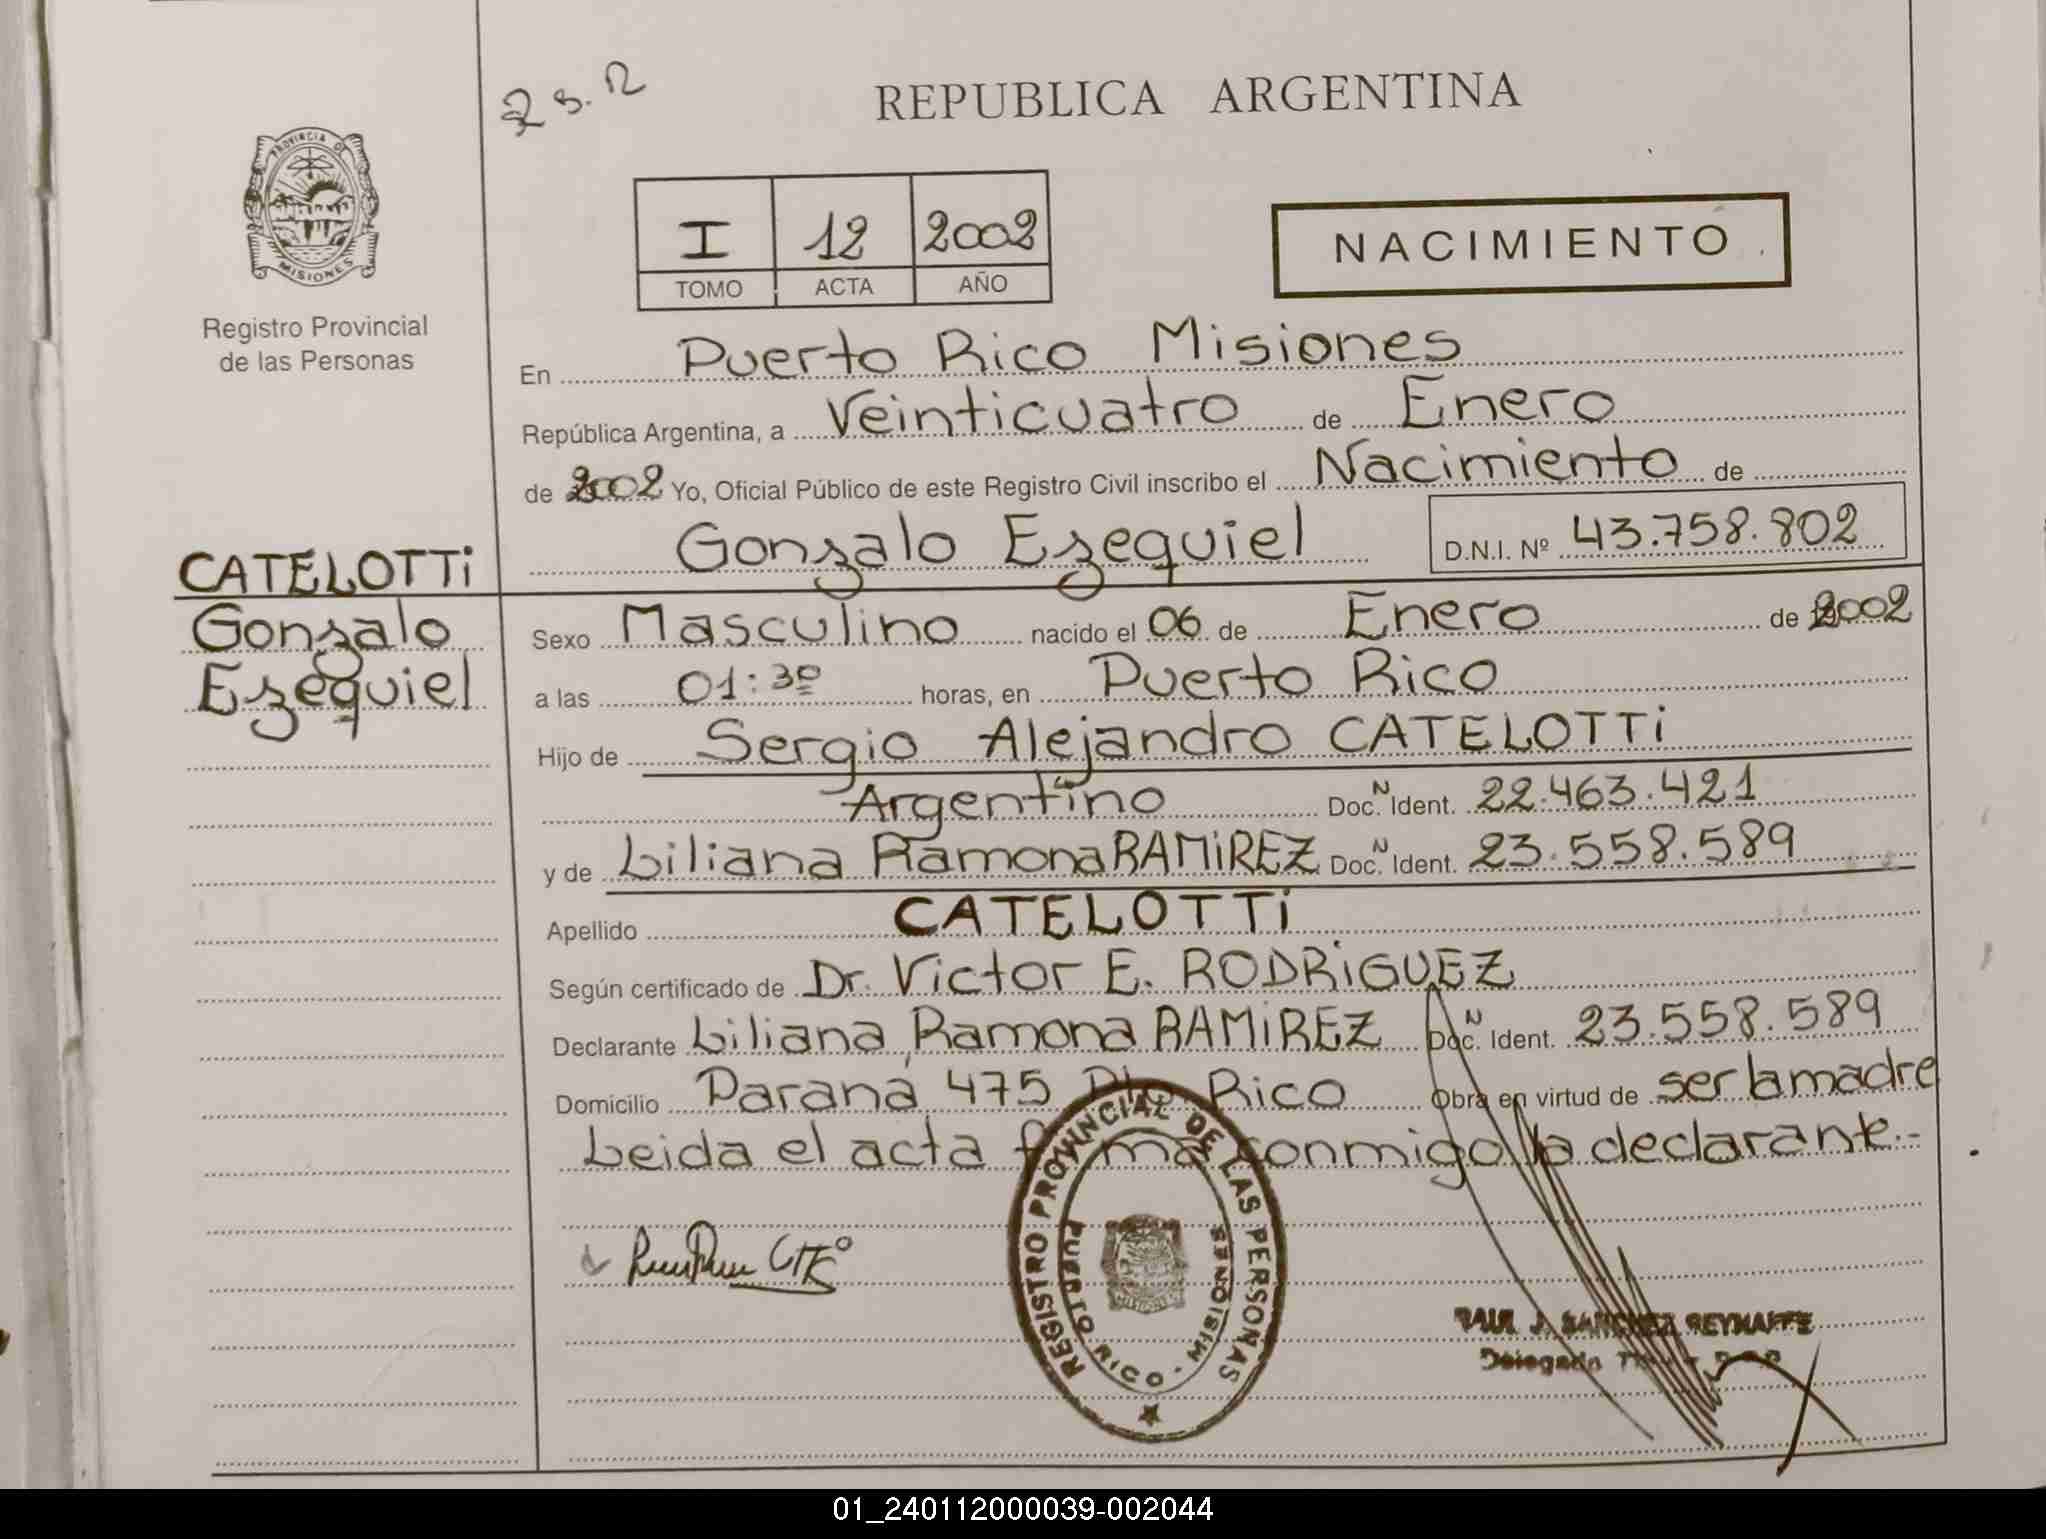 REPUBLICA ARGENTINA
PROVINCIA DE
MISIONES
Registro Provincial
de las Personas
I 12 2002
TOMO ACTA AÑO
NACIMIENTO
En Puerto Rico Misiones
República Argentina, a Veinticuatro de Enero
de 2002 Yo, Oficial Público de este Registro Civil inscribo el Nacimiento de
Gonzalo Ezequiel D.N.I. Nº 43.758.802
CATELOTTi
Gonzalo
Ezequiel
Sexo Masculino nacido el 06 de Enero de 2002
a las 01:30 horas, en Puerto Rico
Hijo de Sergio Alejandro CATELOTTi
Argentino Doc. N Ident. 22.463.421
y de Liliana Ramona RAMiREZ Doc. N Ident. 23.558.589
Apellido CATELOTTi
Según certificado de Dr. Victor E. RODRiGUEZ
Declarante Liliana Ramona RAMiREZ Doc. N Ident. 23.558.589
Domicilio Paraná 475 Pto Rico Obra en virtud de ser la madre
Leida el acta firma conmigo la declarante.-
REGISTRO PROVINCIAL DE LAS PERSONAS
PUERTO RICO - MISIONES
RAUL J. SANCHEZ REYNAFFE
Delegado
01_240112000039-002044